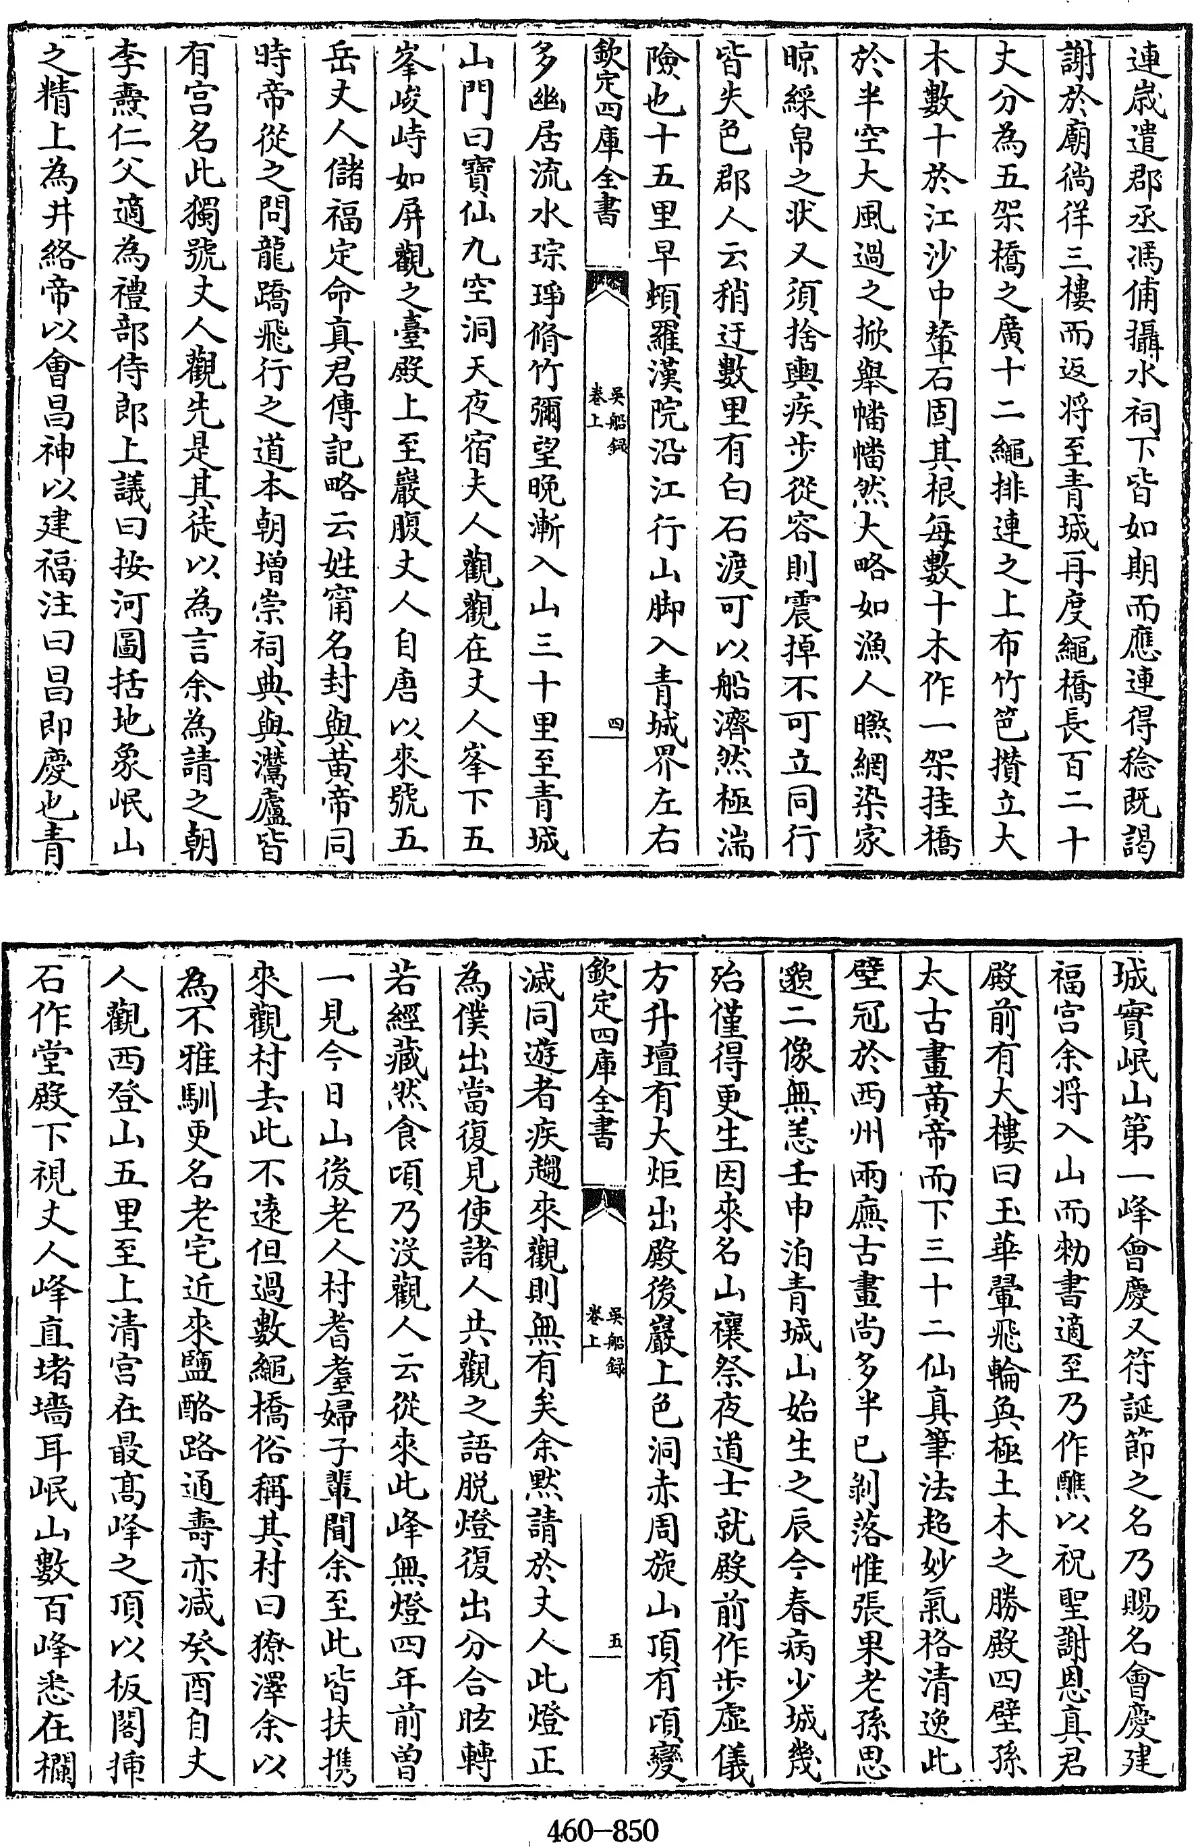 連嵗遣郡丞馮俌攝水祠下皆如期而應連得稔既謁
謝於廟徜徉三樓而返将至青城再度繩橋長百二十
丈分為五架橋之廣十二繩排連之上布竹笆攢立大
木數十於江沙中輦石固其根每數十木作一架挂橋
於半空大風過之掀舉幡幡然大略如漁人曬網染家
晾綵帛之狀又須捨輿疾步從容則震掉不可立同行
皆失色郡人云稍迂數里有白石渡可以船濟然極湍
險也十五里早頓羅漢院沿江行山脚入青城界左右
欽定四庫全書
吳船録
卷上
四
多幽居流水琮琤脩竹彌望晩漸入山三十里至青城
山門曰寶仙九空洞天夜宿夫人觀觀在丈人峯下五
峯峻峙如屏觀之臺殿上至巖腹丈人自唐以來號五
岳丈人儲福定命真君傳記略云姓甯名封與黄帝同
時帝從之問龍蹻飛行之道本朝增崇祠典與灊廬皆
有宫名此獨號丈人觀先是其徒以為言余為請之朝
李燾仁父適為禮部侍郎上議曰按河圖括地象岷山
之精上為井絡帝以會昌神以建福注曰昌即慶也青
城實岷山第一峰會慶又符誕節之名乃賜名會慶建
福宫余将入山而勅書適至乃作醮以祝聖謝恩真君
殿前有大樓曰玉華翬飛輪奐極土木之勝殿四壁孫
太古畫黄帝而下三十二仙真筆法超妙氣格清逸此
壁冠於西州兩廡古畫尚多半已剥落惟張果老孫思
邈二像無恙壬申泊青城山始生之辰今春病少城幾
殆僅得更生因來名山禳祭夜道士就殿前作步虚儀
方升壇有大炬出殿後巖上色洞赤周旋山頂有頃變
欽定四庫全書
吳船録
卷上
五
滅同遊者疾趨來觀則無有矣余黙請於丈人此燈正
為僕出當復見使諸人共觀之語脱燈復出分合眩轉
若經藏然食頃乃没觀人云從來此峰無燈四年前曽
一見今日山後老人村耆耋婦子輩聞余至此皆扶携
來觀村去此不逺但過數繩橋俗稱其村曰獠澤余以
為不雅馴更名老宅近來鹽酪路通壽亦减癸酉自丈
人觀西登山五里至上清宫在最髙峰之頂以板閣揷
石作堂殿下視丈人峰直堵墻耳岷山數百峰悉在欄
460-850